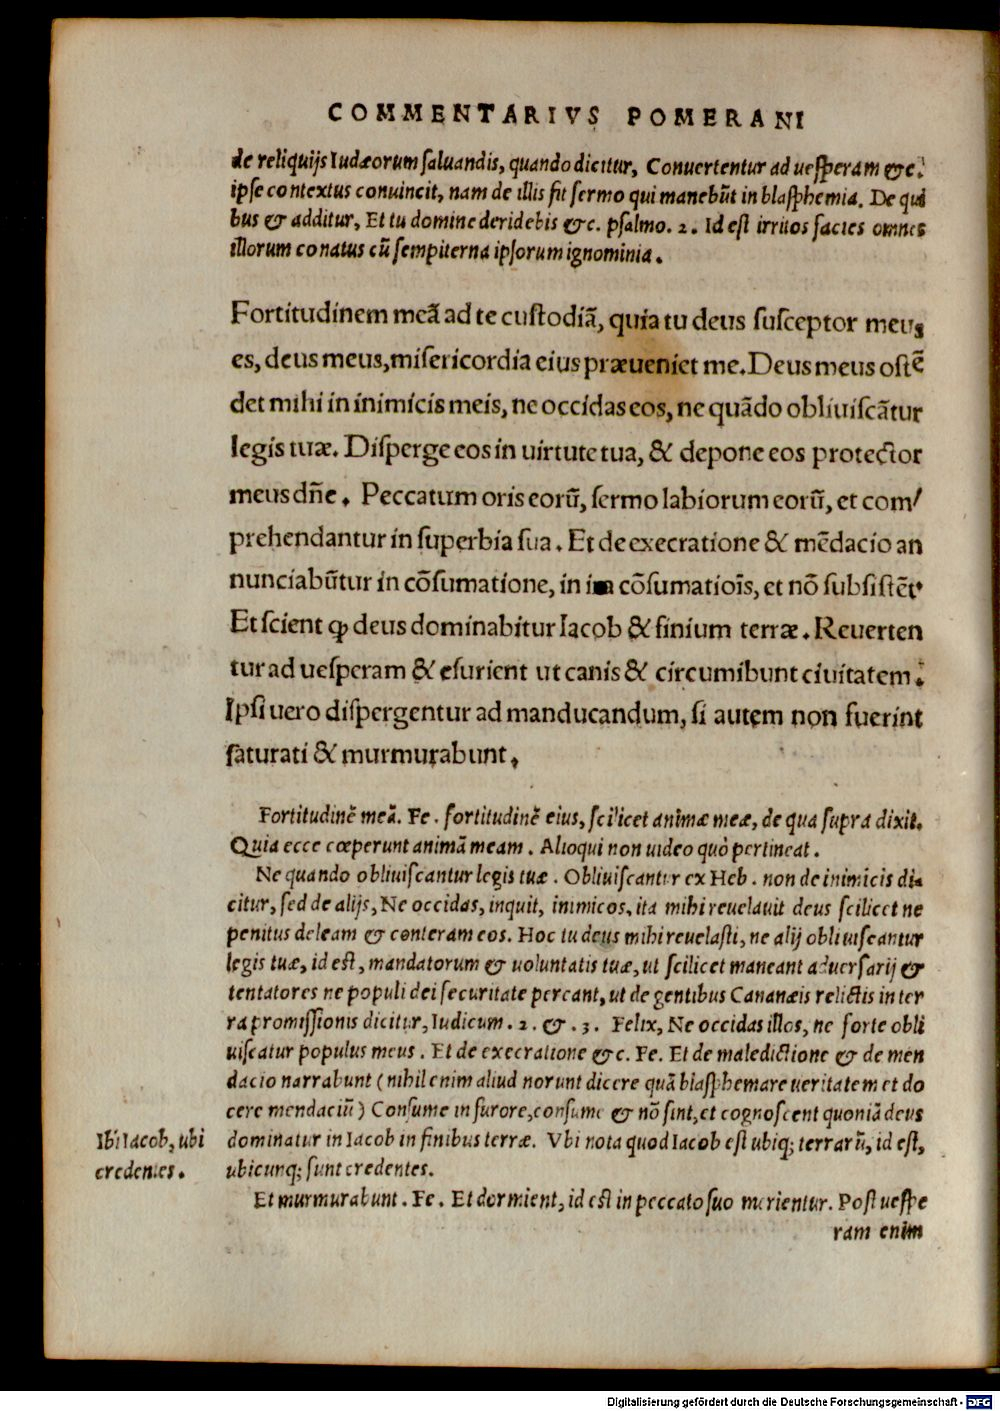 COMMENTARIVS POMERANI
de reliquijs Iudæorum saluandis, quando dicitur, Conuertentur ad uesperam &c.
ipse contextus conuincit, nam de illis fit sermo qui manebũt in blasphemia. De qui
bus & additur, Et tu domine deridebis &c. psalmo. 2. Id est irritos facies omnes
illorum conatus cũ sempiterna ipsorum ignominia.
Fortitudinem meã ad te custodiã, quia tu deus susceptor meus
es, deus meus, misericordia eius præueniet me. Deus meus ostẽ
det mihi in inimicis meis, ne occidas eos, ne quãdo obliuiscãtur
legis tuæ. Disperge eos in uirtute tua, & depone eos protector
meus dñe. Peccatum oris eorũ, sermo labiorum eorũ, et com/
prehendantur in superbia sua. Et de execratione & mẽdacio an
nunciabũtur in cõsumatione, in ira cõsumatiõis, et nõ subsistẽt.
Et scient ꝙ deus dominabitur Iacob & finium terræ. Reuerten
tur ad uesperam & esurient ut canis & circumibunt ciuitatem.
Ipsi uero dispergentur ad manducandum, si autem non fuerint
saturati & murmurabunt.
Fortitudinẽ meã. Fe. fortitudinẽ eius, scilicet animæ meæ, de qua supra dixit.
Quia ecce cœperunt animã meam. Alioqui non uideo quò pertineat.
Ne quando obliuiscantur legis tuæ. Obliuiscantur ex Heb. non de inimicis di-
citur, sed de alijs, Ne occidas, inquit, inimicos, ita mihi reuelauit deus scilicet ne
penitus deleam & conteram eos. Hoc tu deus mihi reuelasti, ne alij obliuiscantur
legis tuæ, id est, mandatorum & uoluntatis tuæ, ut scilicet maneant aduersarij &
tentatores ne populi dei securitate pereant, ut de gentibus Cananæis relictis in ter
ra promissionis dicitur, Iudicum. 2. &. 3. Felix, Ne occidas illos, ne forte obli
uiscatur populus meus. Et de execratione &c. Fe. Et de maledictione & de men
dacio narrabunt (nihil enim aliud norunt dicere quã blasphemare ueritatem et do
cere mendaciũ) Consume in furore, consume & nõ sint, et cognoscent quoniã deus
dominatur in Iacob in finibus terræ. Vbi nota quod Iacob est ubiq; terrarũ, id est,
ubicunq; sunt credentes.
Ibi Iacob, ubi
credentes.
Et murmurabunt. Fe. Et dormient, id est in peccato suo morientur. Post uespe
ram enim
Digitalisierung gefördert durch die Deutsche Forschungsgemeinschaft - DFG